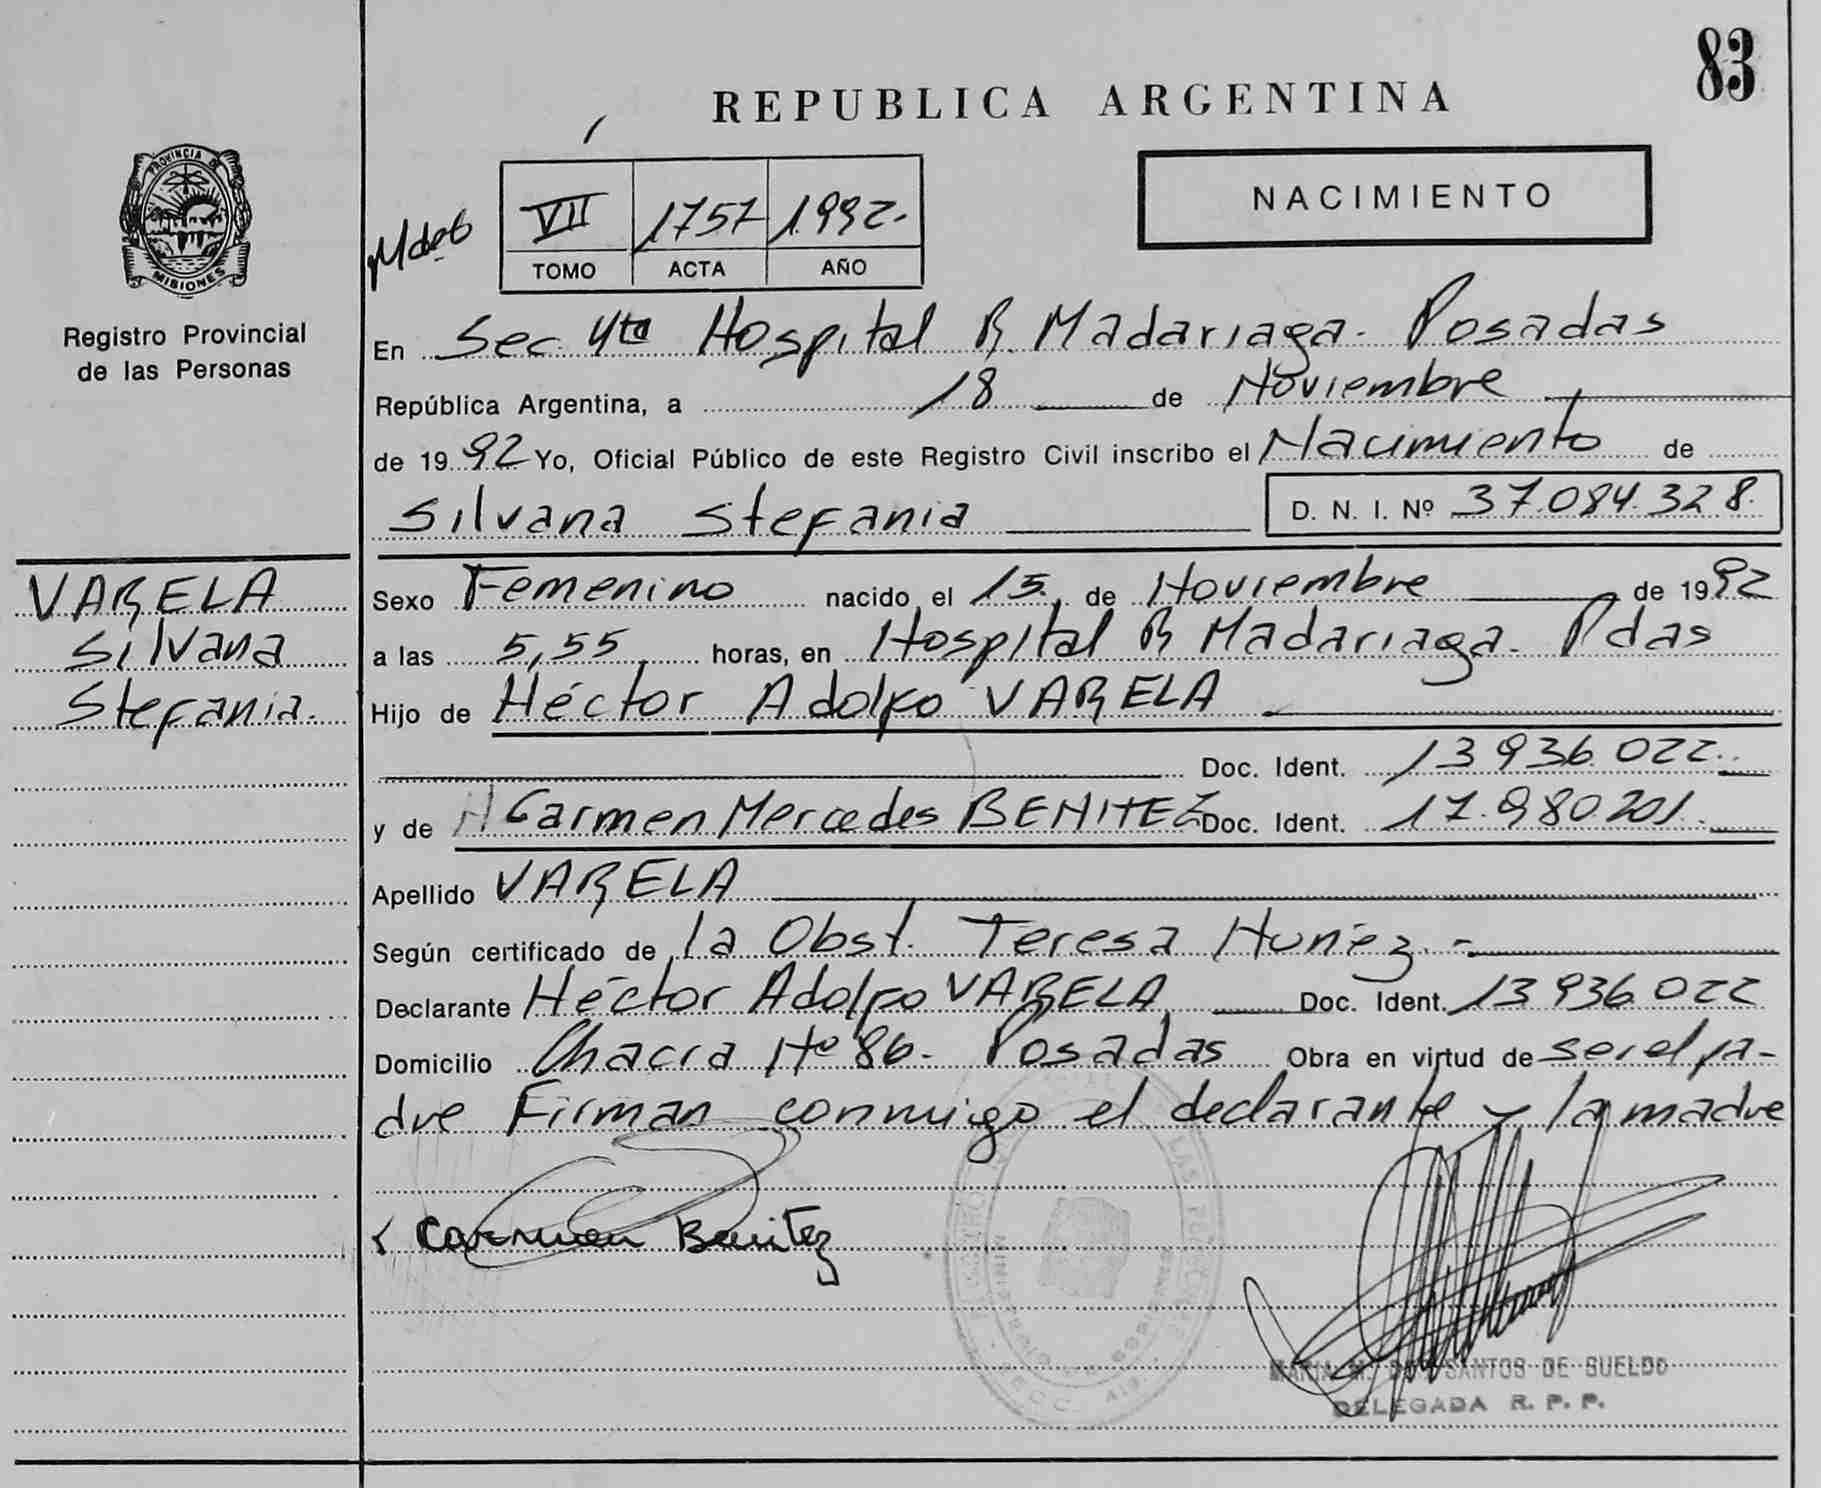 83
REPUBLICA ARGENTINA
NACIMIENTO
PROVINCIA DE
MISIONES
Registro Provincial
de las Personas
VII 1757 1.992.-
TOMO ACTA AÑO
En Sec 4ta Hospital R. Madariaga - Posadas
República Argentina, a 18 de Noviembre
de 1992 Yo, Oficial Público de este Registro Civil inscribo el Nacimiento de
Silvana Stefania D. N. I. Nº 37.084.328.
VARELA
Silvana
Stefania.
Sexo Femenino nacido el 15 de Noviembre de 1992
a las 5,55 horas, en Hospital R Madariaga - Pdas
Hijo de Héctor Adolfo VARELA
Doc. Ident. 13 936 022
y de Carmen Mercedes BENITEZ Doc. Ident. 17.980.201.
Apellido VARELA
Según certificado de la Obst. Teresa Nuñez.-
Declarante Héctor Adolfo VARELA Doc. Ident. 13 936 022
Domicilio Chacra Nº 86 - Posadas Obra en virtud de ser el pa-
dre Firman conmigo el declarante y la madre
Carmen Benitez
MARIA M. DOS SANTOS DE SUELDO
DELEGADA R. P. P.